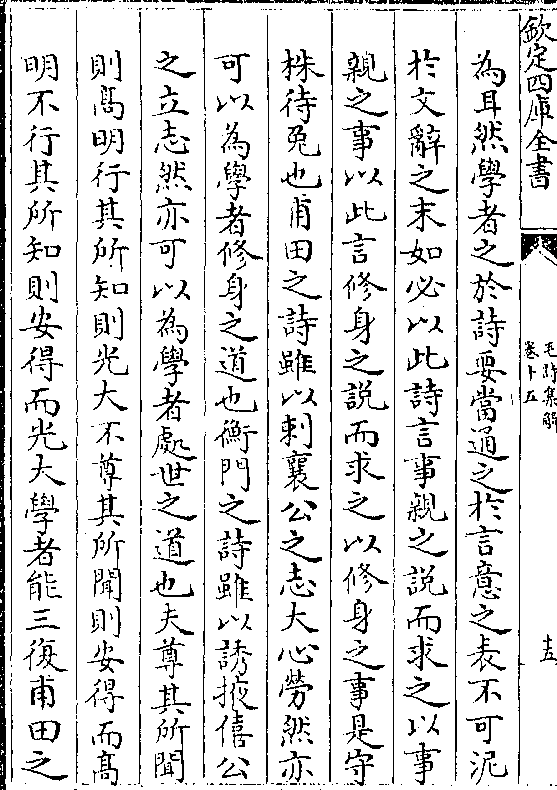 欽定四庫全書
毛詩集解
卷十五
十五
為耳然學者之於詩要當通之於言意之表不可泥
於文辭之末如必以此詩言事親之說而求之以事
親之事以此言修身之說而求之以修身之事是守
株待兔也甫田之詩雖以刺襄公之志大心勞然亦
可以為學者修身之道也衡門之詩雖以誘掖僖公
之立志然亦可以為學者處世之道也夫尊其所聞
則髙明行其所知則光大不尊其所聞則安得而髙
明不行其所知則安得而光大學者能三復甫田之